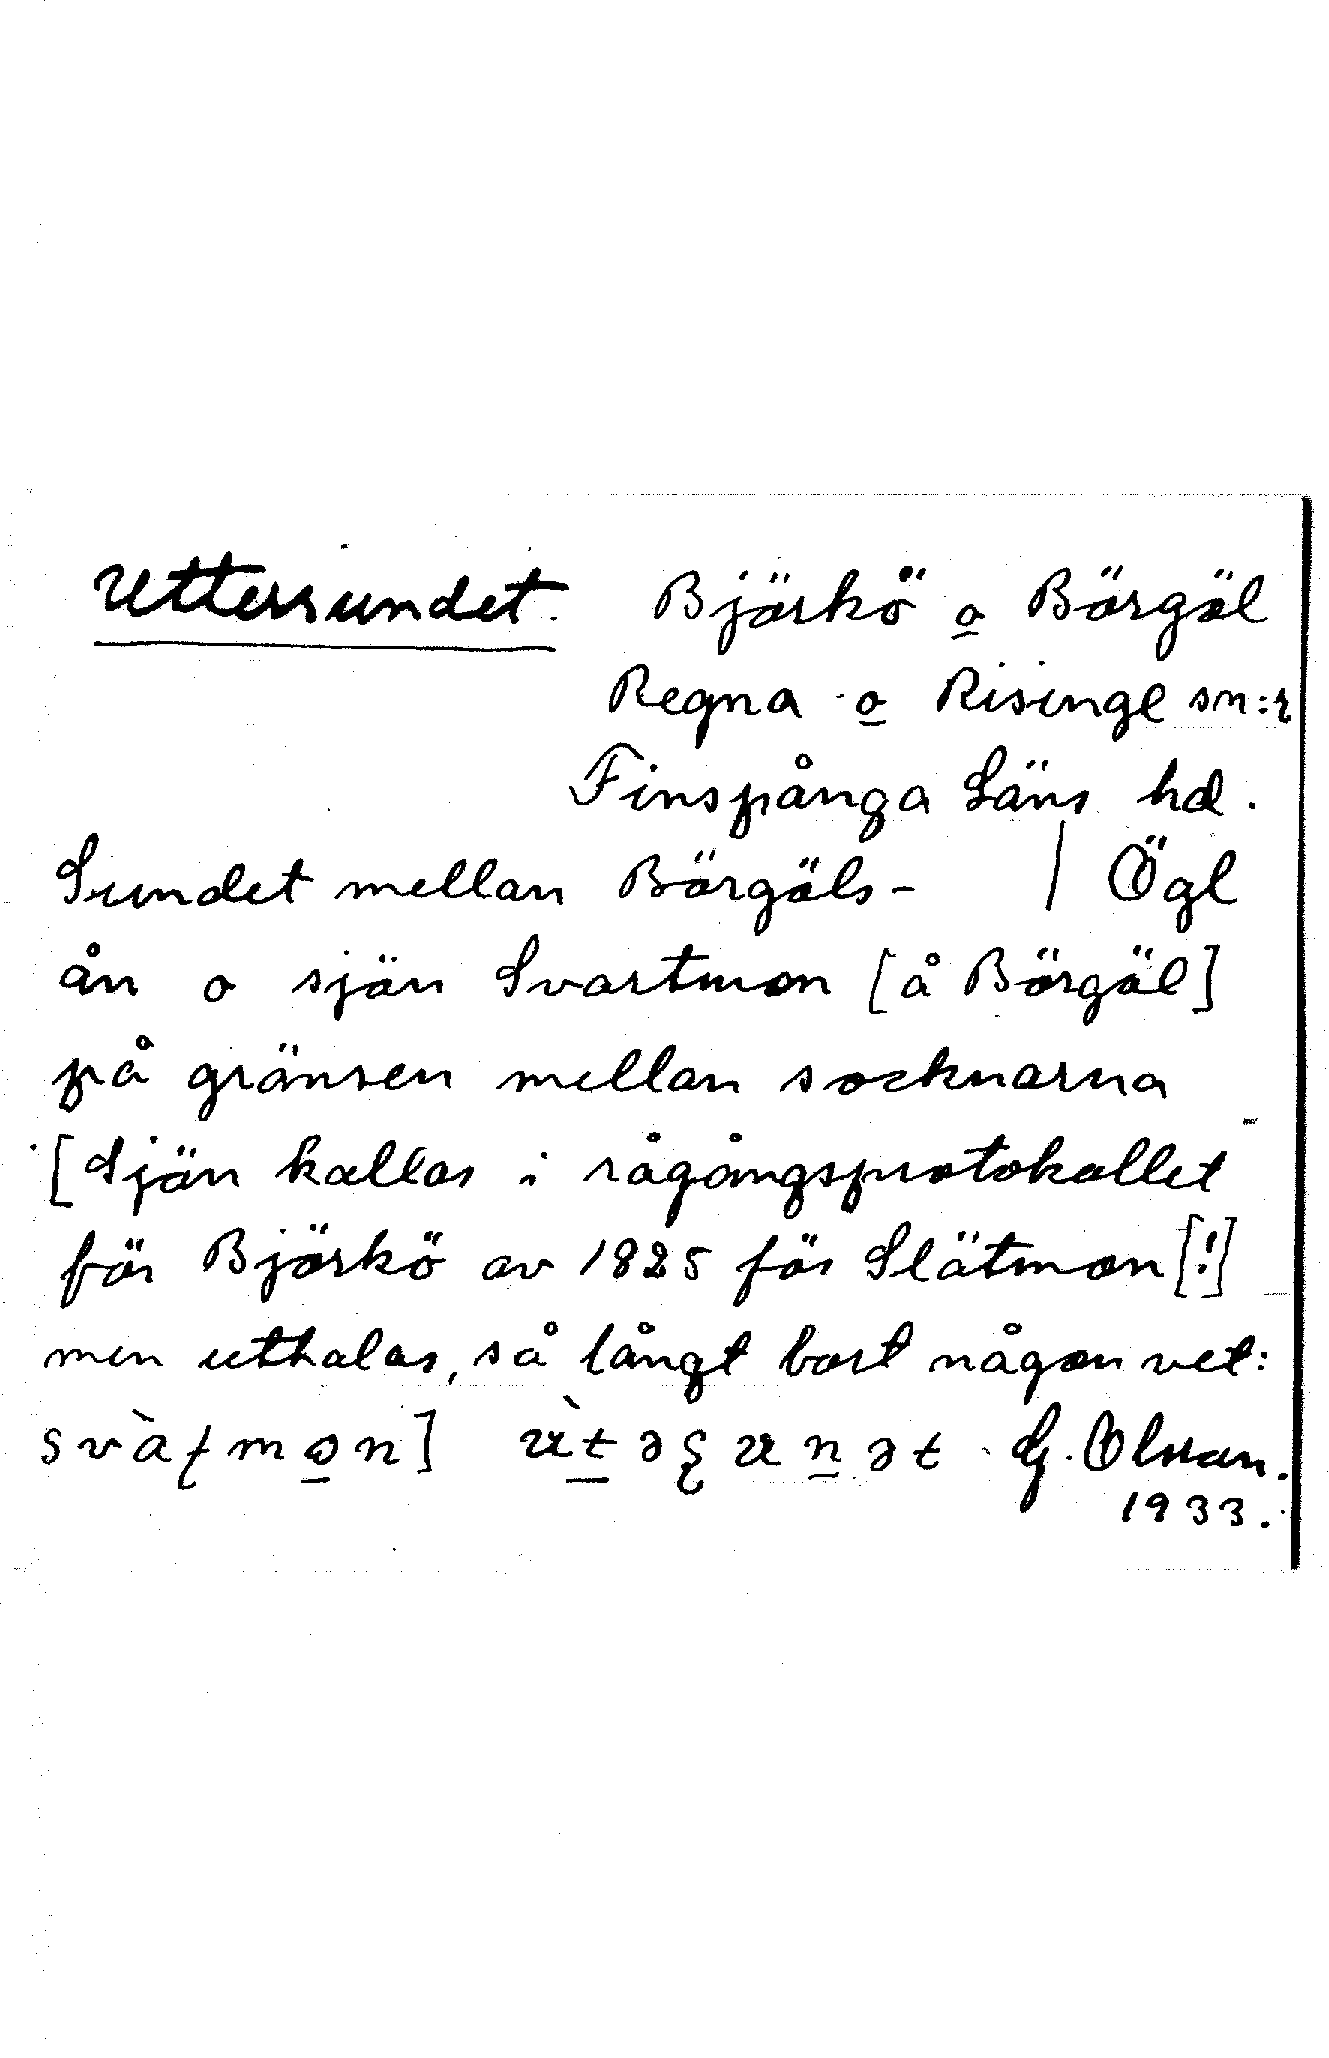 Uttersundet. Björkö o Börgöl
Regna o Risinge sn:r
Finspånga Läns hd.
Sundet mellan Börgöls- | Ögl
ån o sjön Svartmon [å Börgöl]
på gränsen mellan socknarna
[Sjön kallas i rågångsprotokollet
för Björkö av 1825 för Slätmon [!]
men uttalas, så långt bort någon vet:
G. Olsson.
1933.